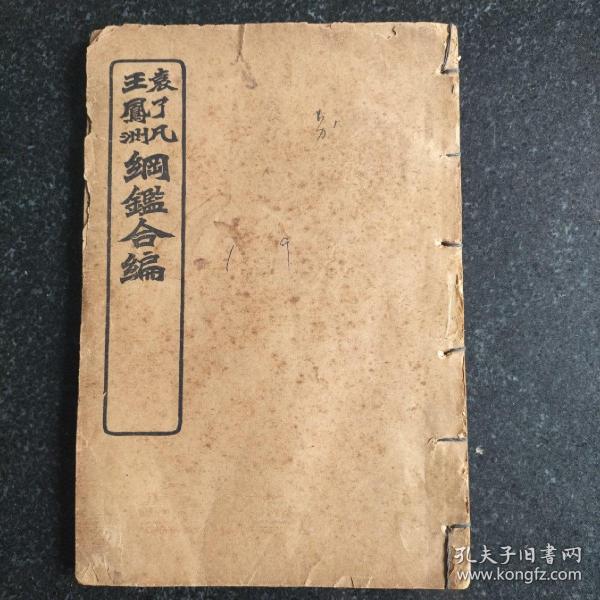 袁了凡
王鳳洲
綱鑑合編
19
孔夫子旧書网
www.kongfz.com